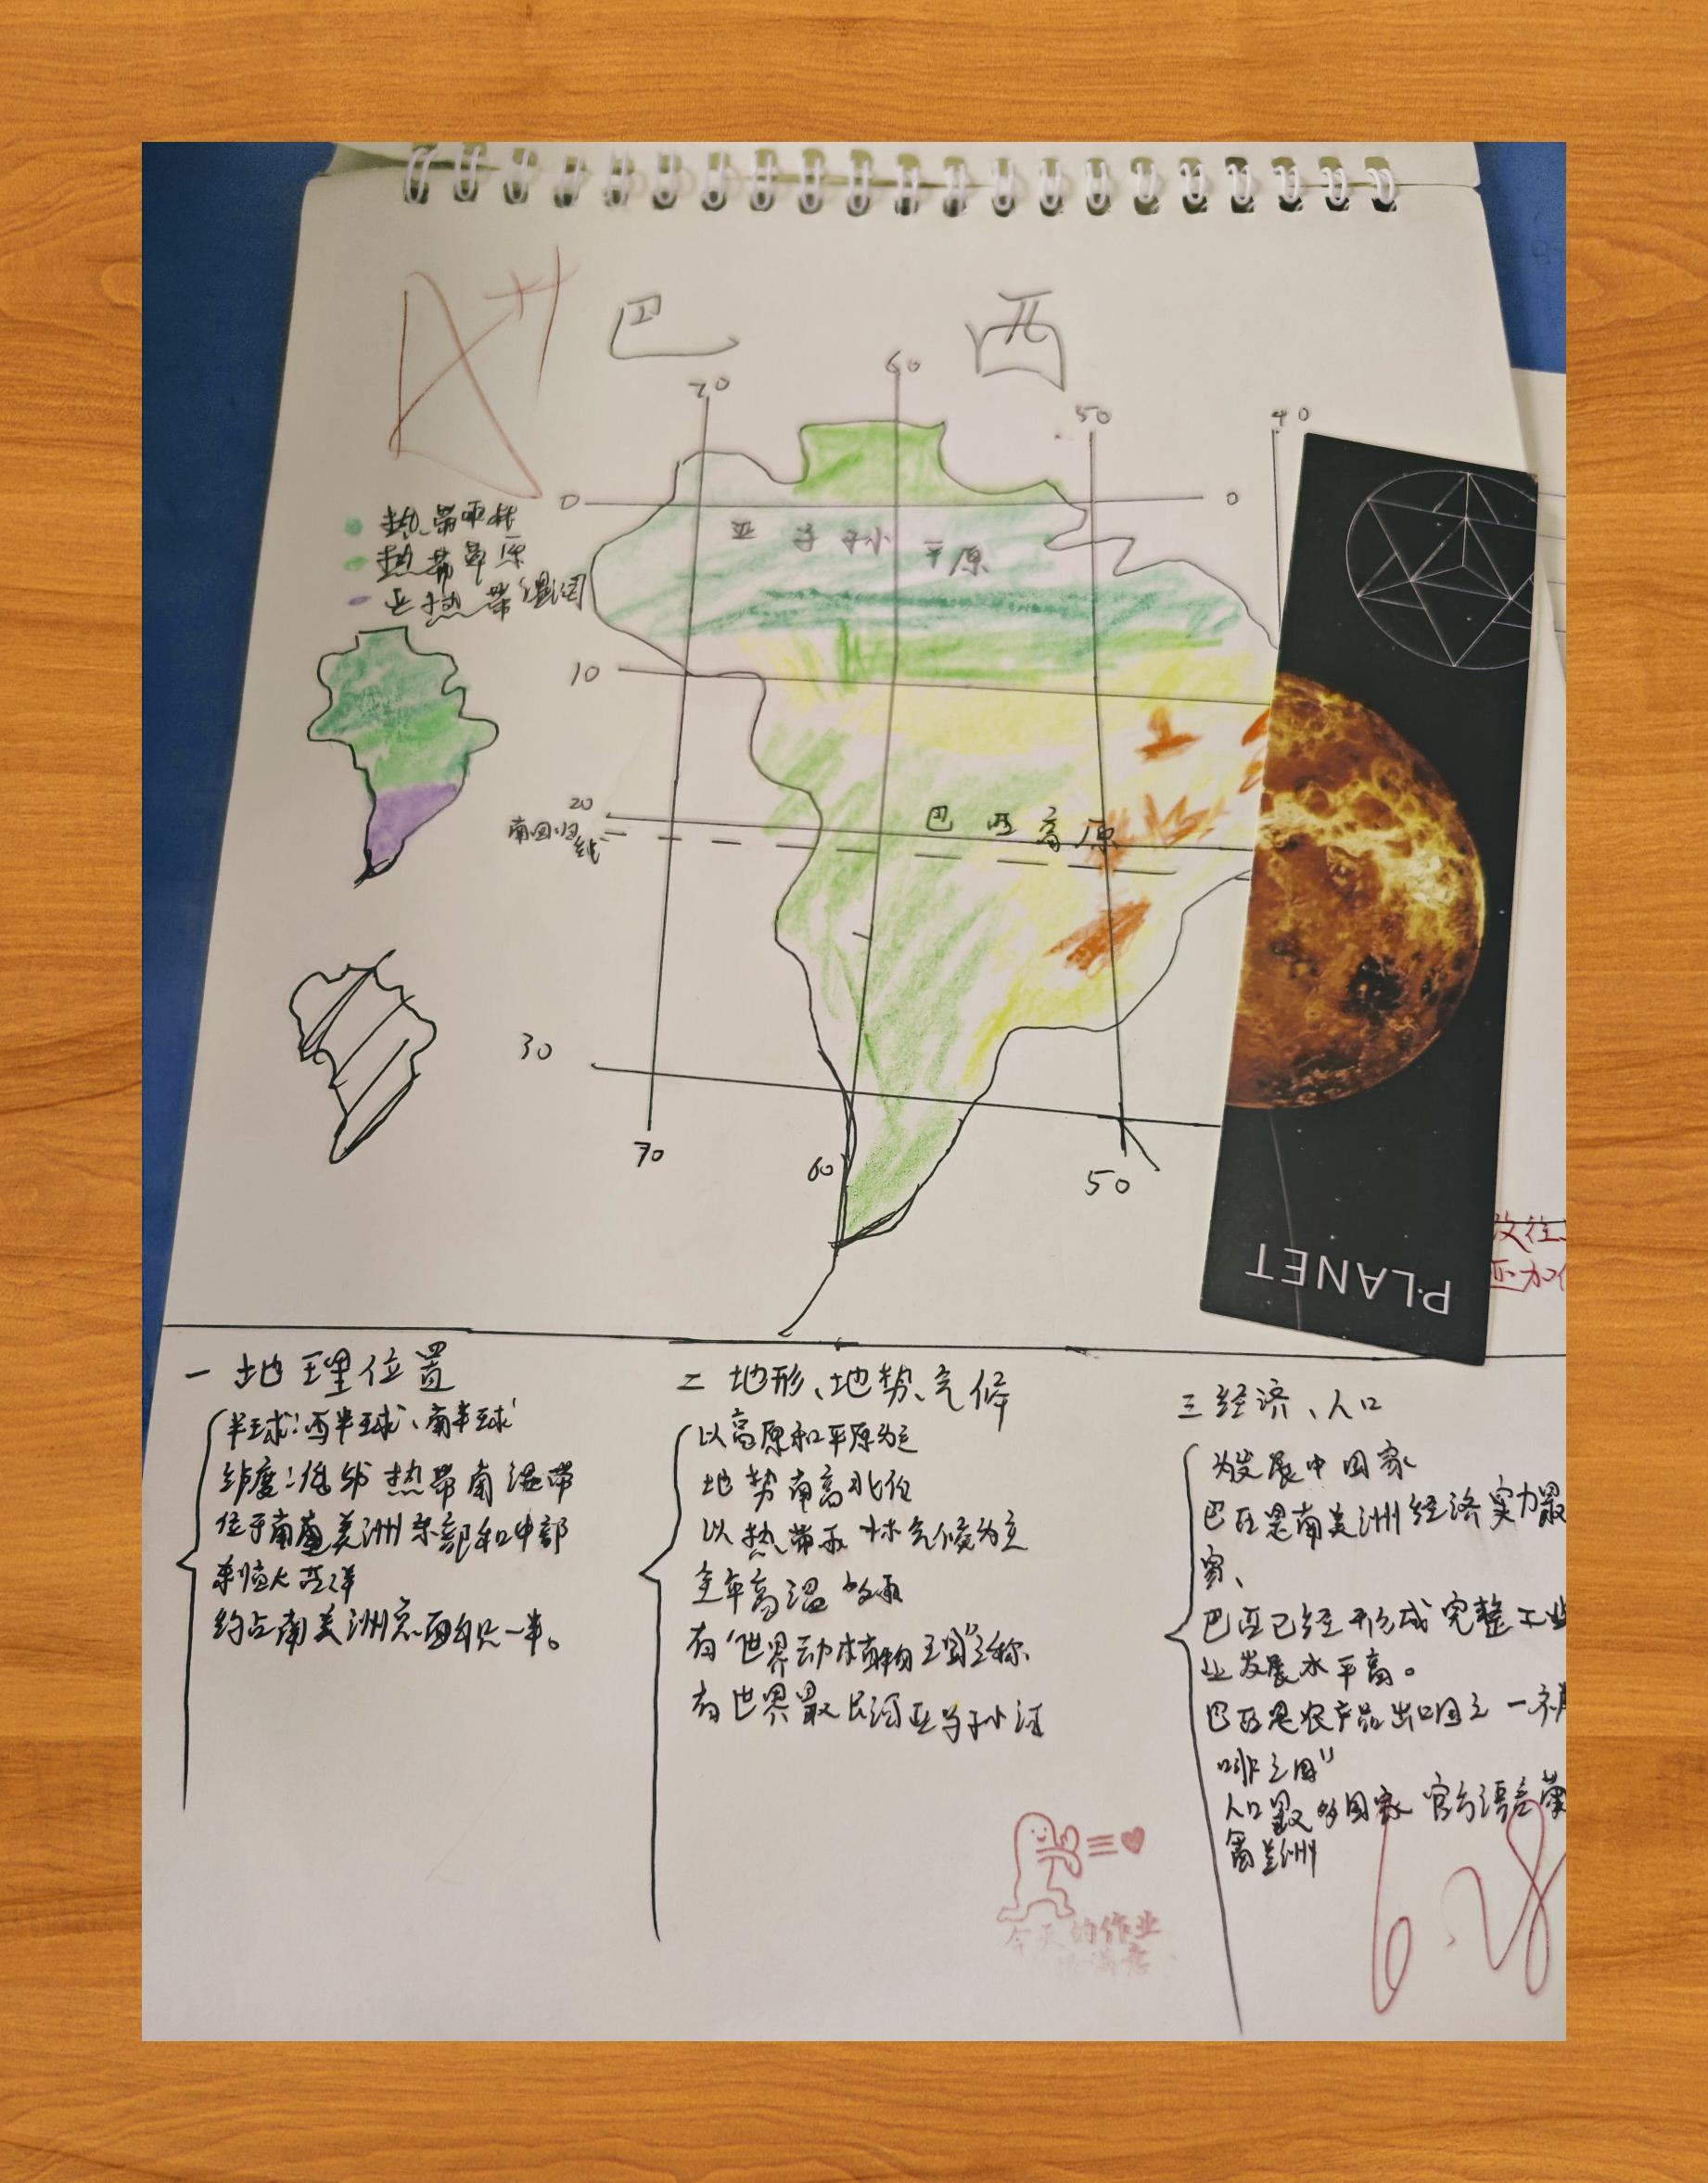 A++
巴 西
70
60
50
40
0
0
热带雨林
热带草原
亚热带湿润
亚马孙平原
10
20
南回归线
巴西高原
30
70
60
50
PLANET
一 地理位置
半球:西半球、南半球
纬度:低纬 热带南温带
位于南美洲东部和中部
东临大西洋
约占南美洲总面积一半。
二 地形、地势、气候
以高原和平原为主
地势南高北低
以热带雨林气候为主
全年高温多雨
有"世界动植物王国"之称
有世界最长河亚马孙河
三 经济、人口
为发展中国家
巴西是南美洲经济实力最
家、
巴西已经形成完整工业
业发展水平高。
巴西是农产品出口国之一
啡之国"
人口最多国家 官方语言葡
萄
6.28
今天的作业
满意